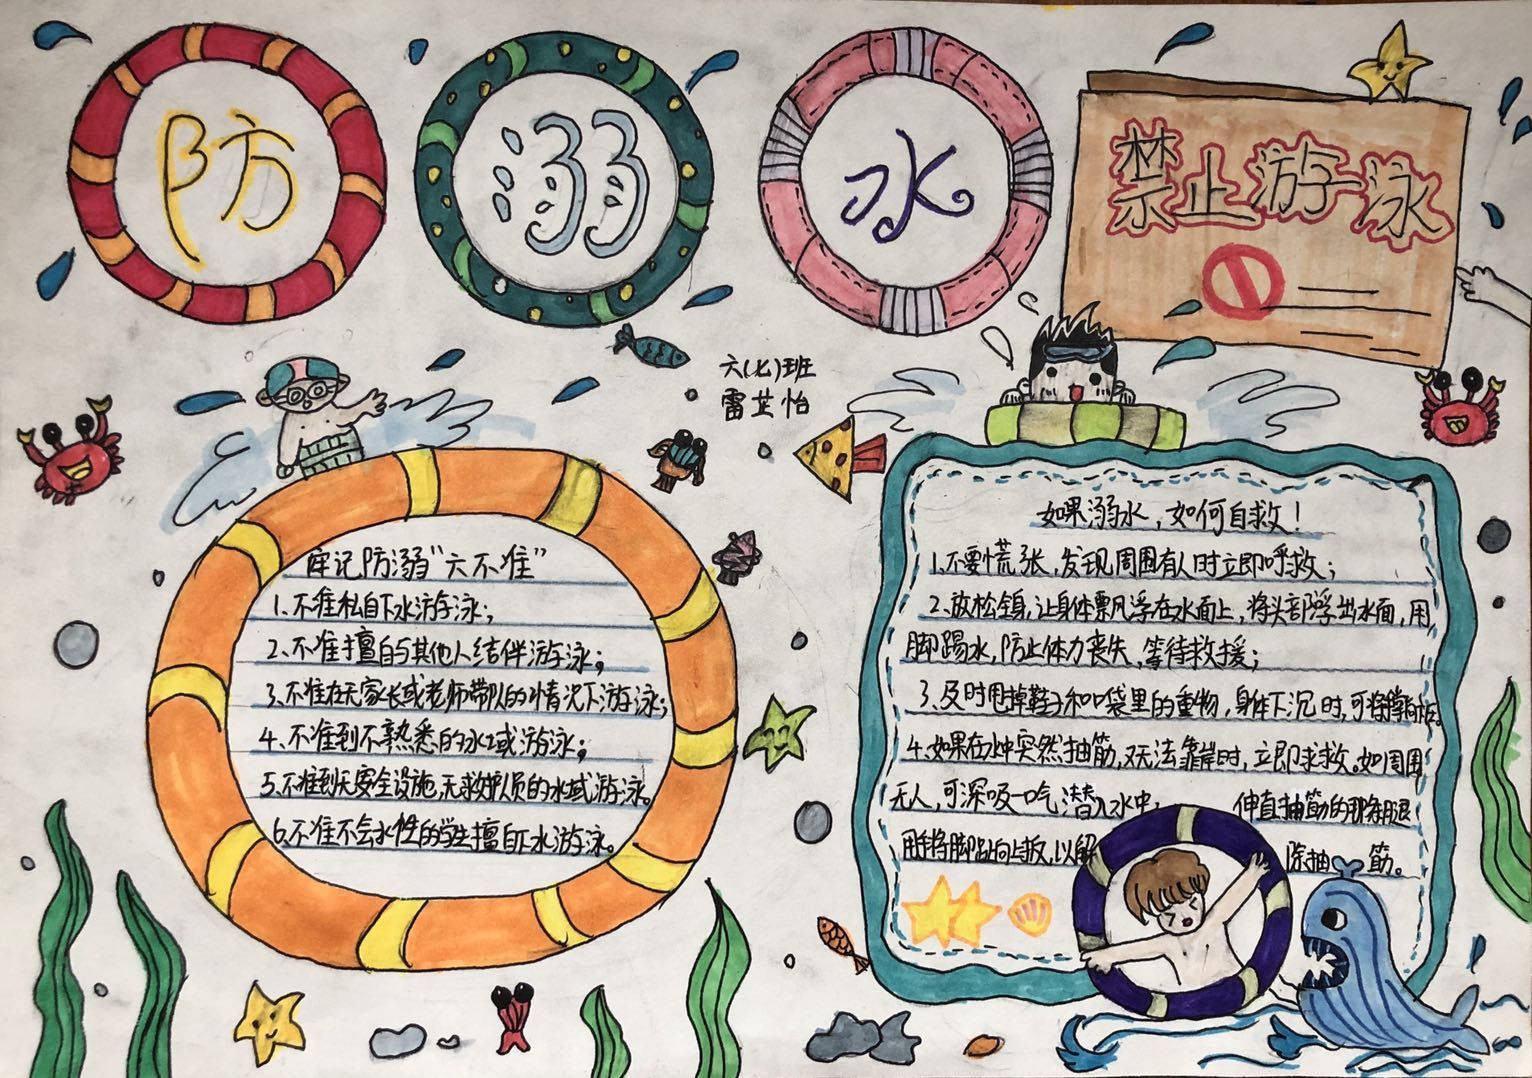 防
溺
水
禁止游泳
六(七)班
雷芷怡
牢记防溺“六不准”
1、不准私自下水游泳；
2、不准擅自与其他人结伴游泳；
3、不准在无家长或老师带队的情况下游泳；
4、不准到不熟悉的水域游泳；
5、不准到无安全设施，无救护员的水域游泳。
6、不准不会水性的学生擅自下水游泳。
如果溺水，如何自救！
1、不要慌张，发现周围有人时立即呼救；
2、放松全身，让身体飘浮在水面上，将头部浮出水面，用
脚踢水，防止体力丧失，等待救援；
3、及时甩掉鞋子和口袋里的重物，身体下沉时，可将
4、如果在水中突然抽筋，又无法靠岸时，立即求救。如周围
无人，可深吸一口气潜入水中， 伸直抽筋的那条腿
用手将脚趾向上扳，以解 除抽筋。